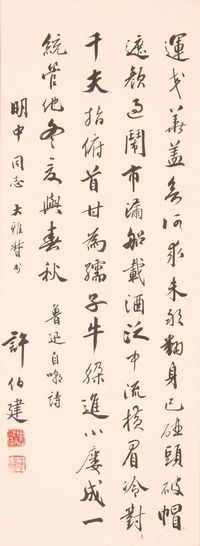 運交華盖欲何求未敢翻身已碰頭破帽
遮顔過鬧市漏船載酒泛中流橫眉冷對
千夫指俯首甘為孺子牛躲進小樓成一
統管他冬夏與春秋
魯迅自嘲詩
明中同志大雅督书
許伯建